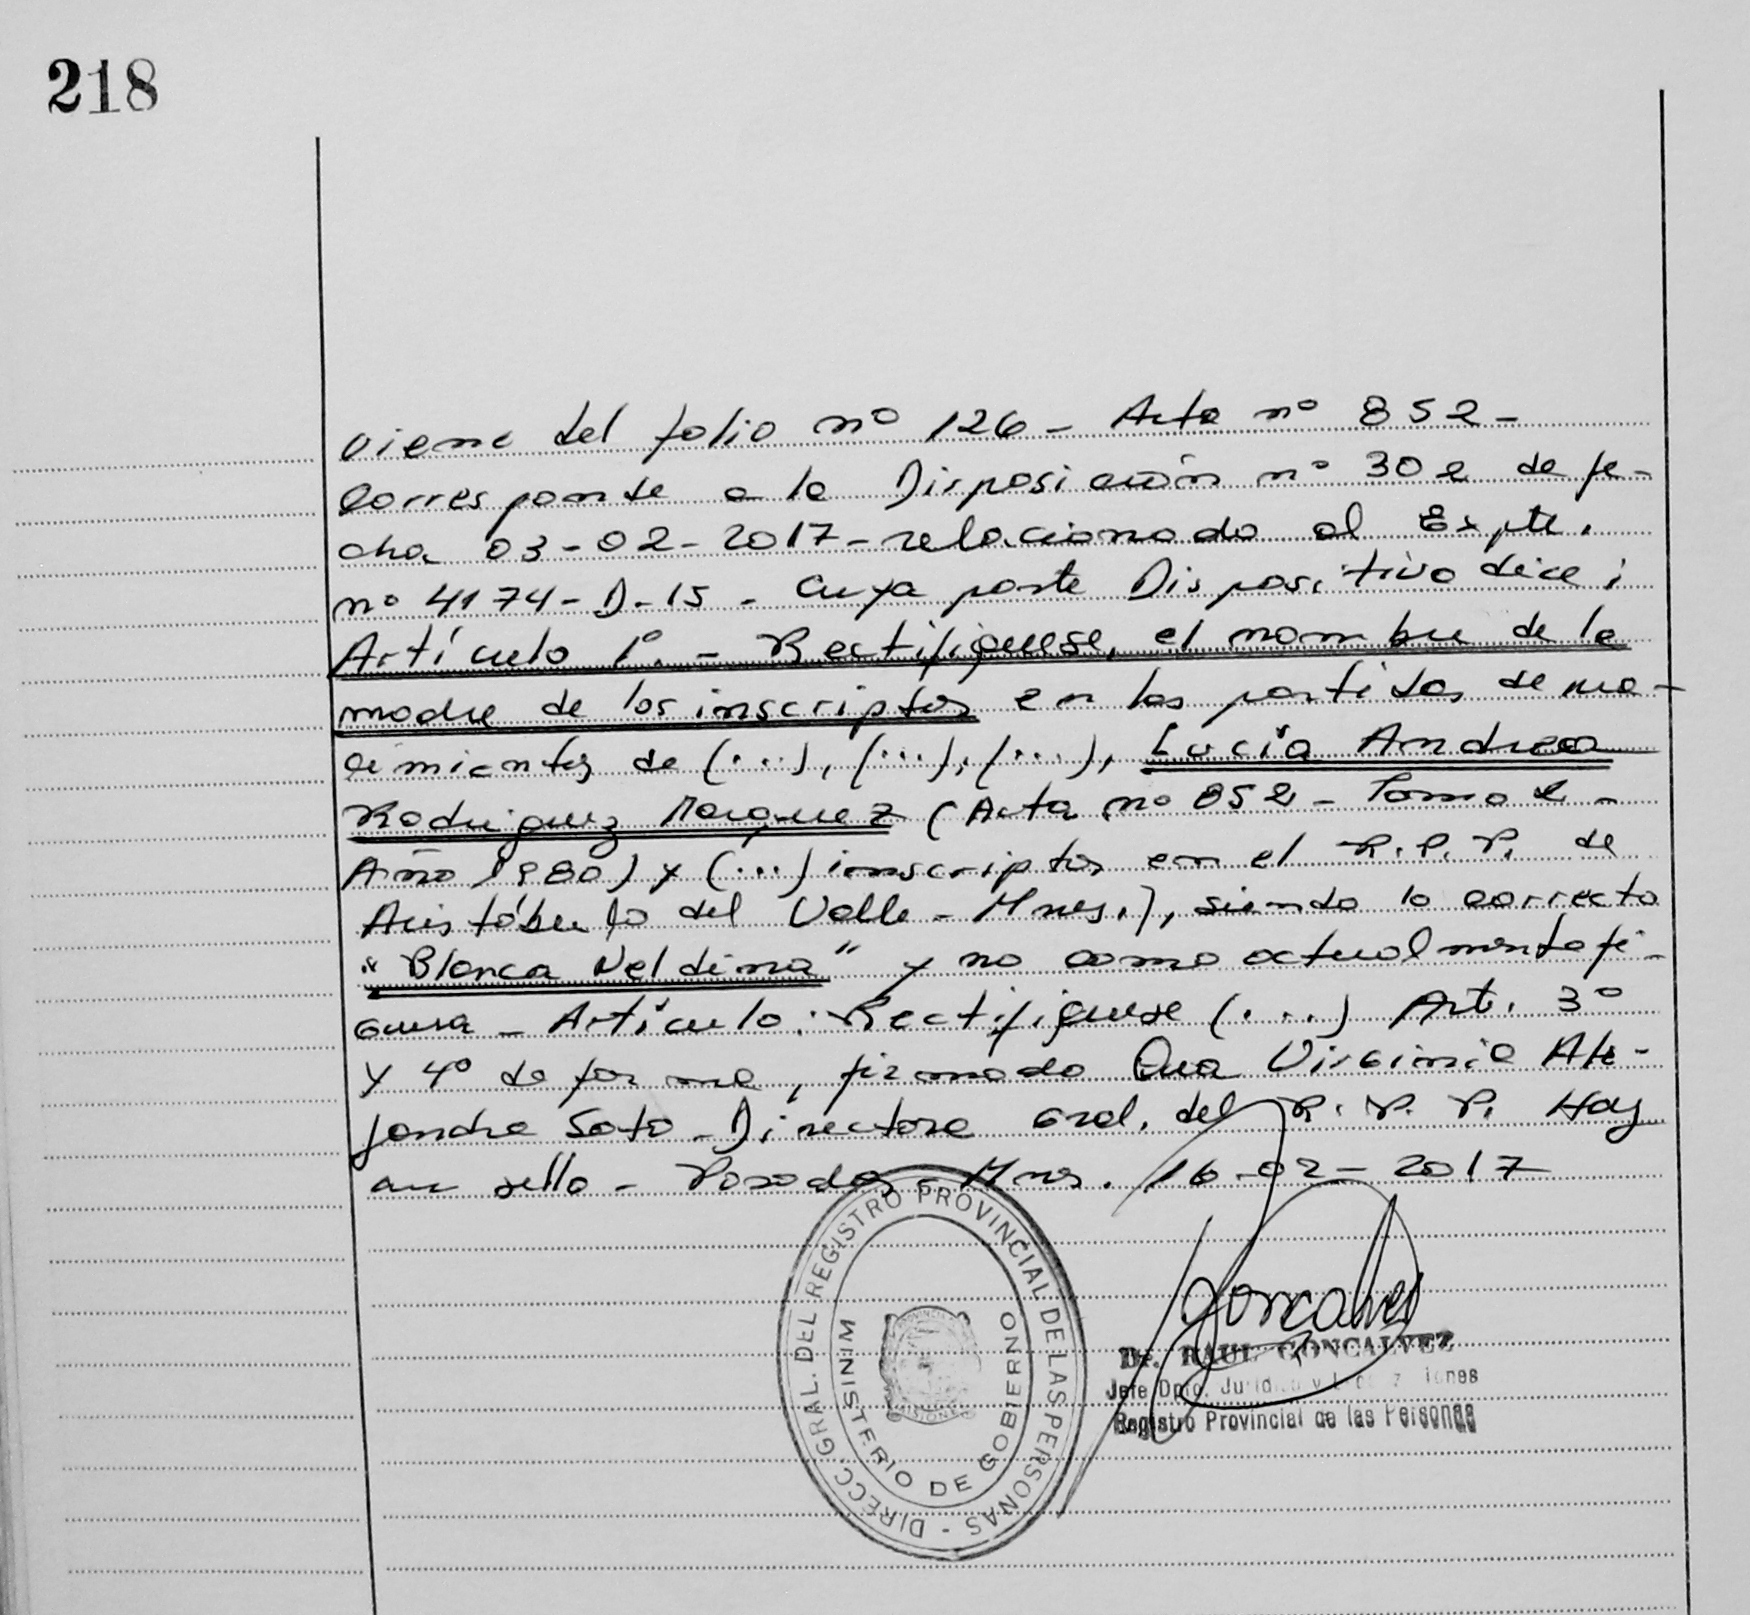 218
viene del folio nº 126 - Acta nº 852 -
Corresponde a la Disposición nº 302 de fe-
cha 03-02-2017 - relacionado al Expte.
nº 4174-D-15 - Cuya parte Dispositiva dice:
Artículo 1º. - Rectifíquese, el nombre de la
madre de los inscriptos en las partidas de na-
cimientos de (...), (...), (...), Lucía Andrea
Rodriguez Marquez (Acta nº 852 - Tomo 2 -
Año 1980) y (...) inscriptos en el R.P.P. de
Aristóbulo del Valle - Mnes.), siendo lo correcto
"Blanca Neldina" y no como actualmente fi-
gura - Artículo: Rectifiquese (...) Art. 3º
y 4º de forma, firmado Dra Virginia Ale-
jandra Soto - Directora Gral. del R.P.P. Hay
un sello - Posadas - Mnes. 16-02-2017
DIRECC. GRAL. DEL REGISTRO PROVINCIAL DE LAS PERSONAS -
MINISTERIO DE GOBIERNO
PROVINCIA
MISIONES
Goncalves
Dr. RAUL GONCALVEZ
Jefe Dpto. Jurídico y
Registro Provincial de las Personas